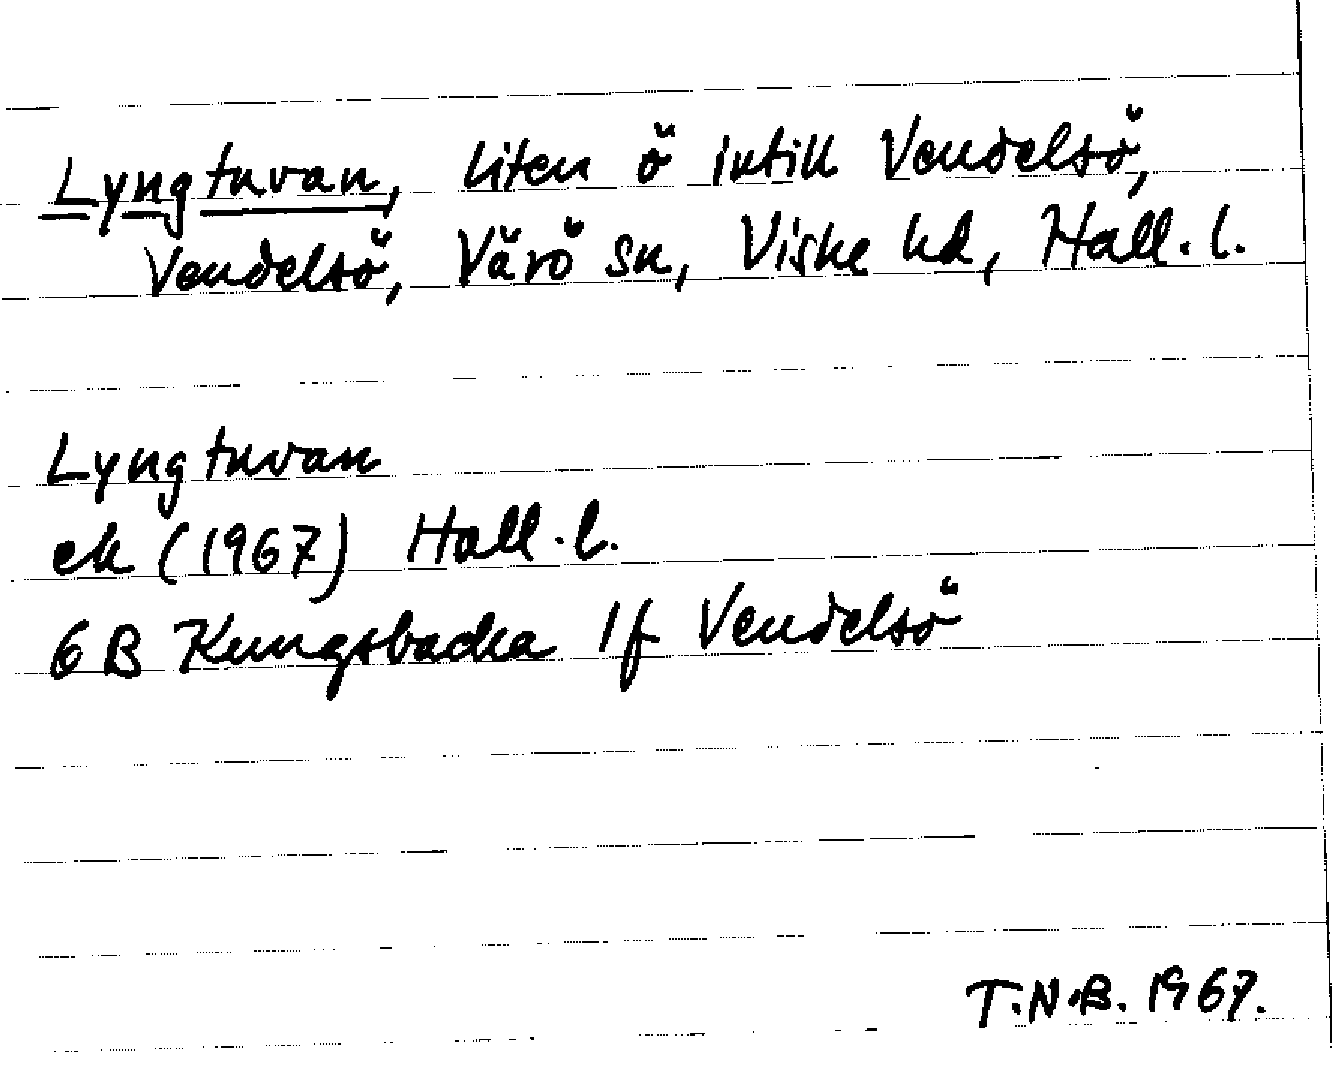 Lyngtuvan, liten ö intill Vendelsö,
Vendelsö, Värö sn, Viske hd, Hall. l.
Lyngtuvan
ek (1967) Hall. l.
6B Kungsbacka 1f Vendelsö
T.N.B. 1967.